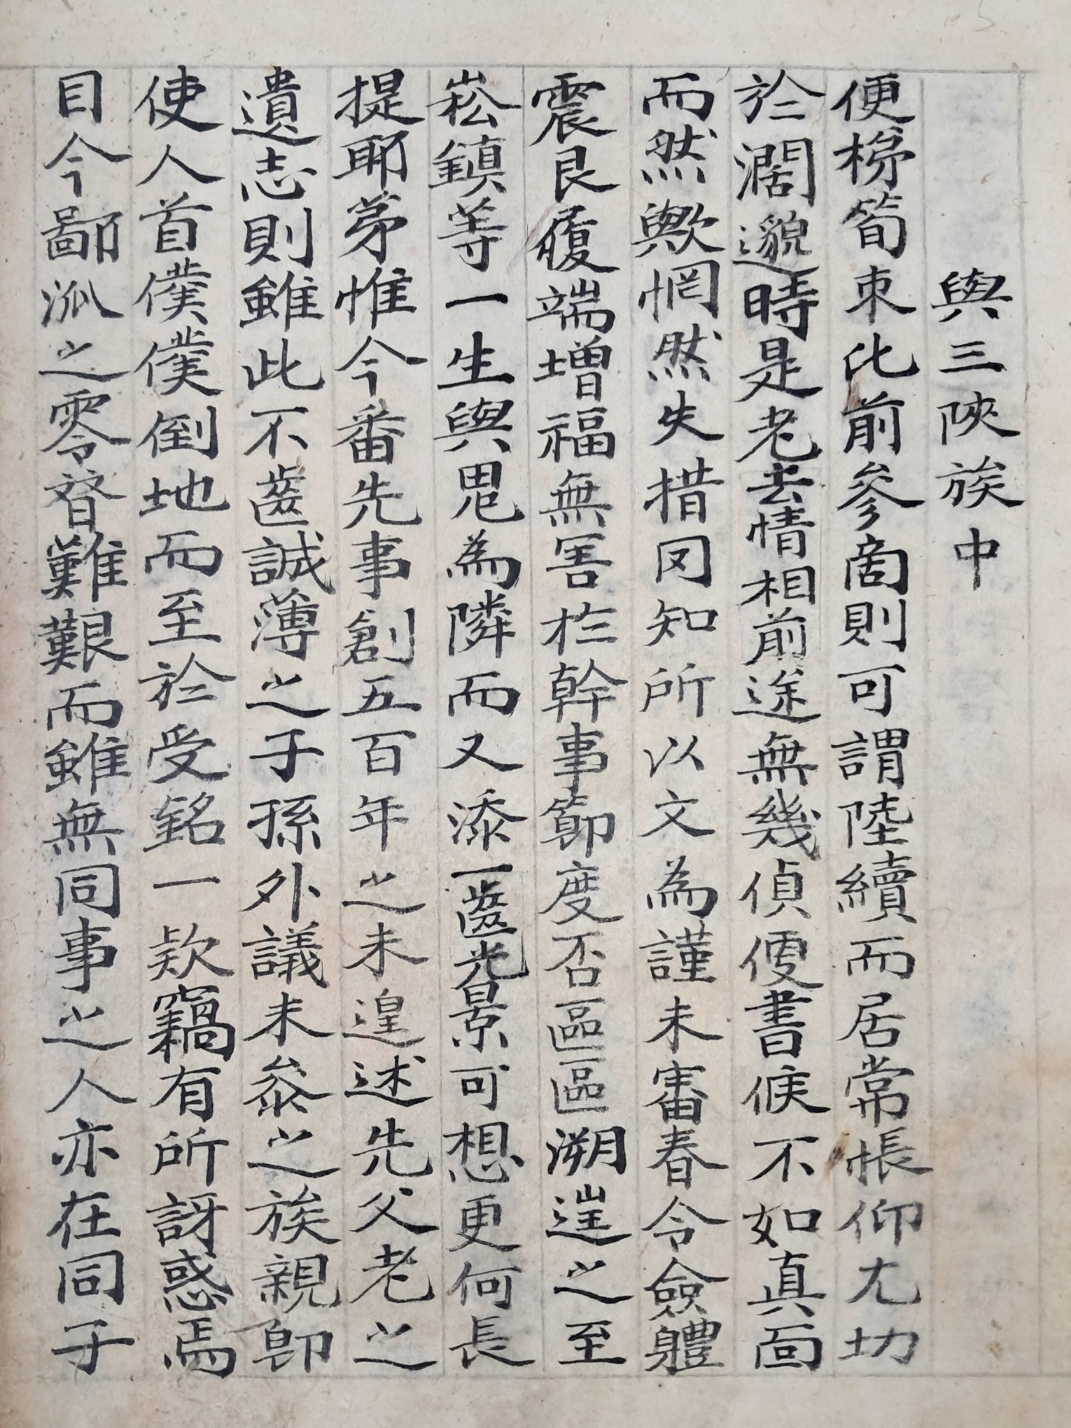 與三陜族中
便梯筍束比前參啇則可謂陸續而居常悵仰尤切
於濶邈時是老去情相前途無幾偵便書候不如真面
而然歟惘然失措罔知所以文為謹未審春令僉體
震艮履端增福無害於幹事節度否區區溯𨓏之至
崧鎮等一生與鬼為隣而又添一齒光景可想更何長
提耶第惟今番先事創五百年之未遑述先父老之
遺志則雖此不齒誠薄之子孫外議未叅之族親卽
使人首僕僕倒地而至於受銘一欵竊有所訝惑焉
目今鄙泒之零替難艱而雖無同事之人亦在同子